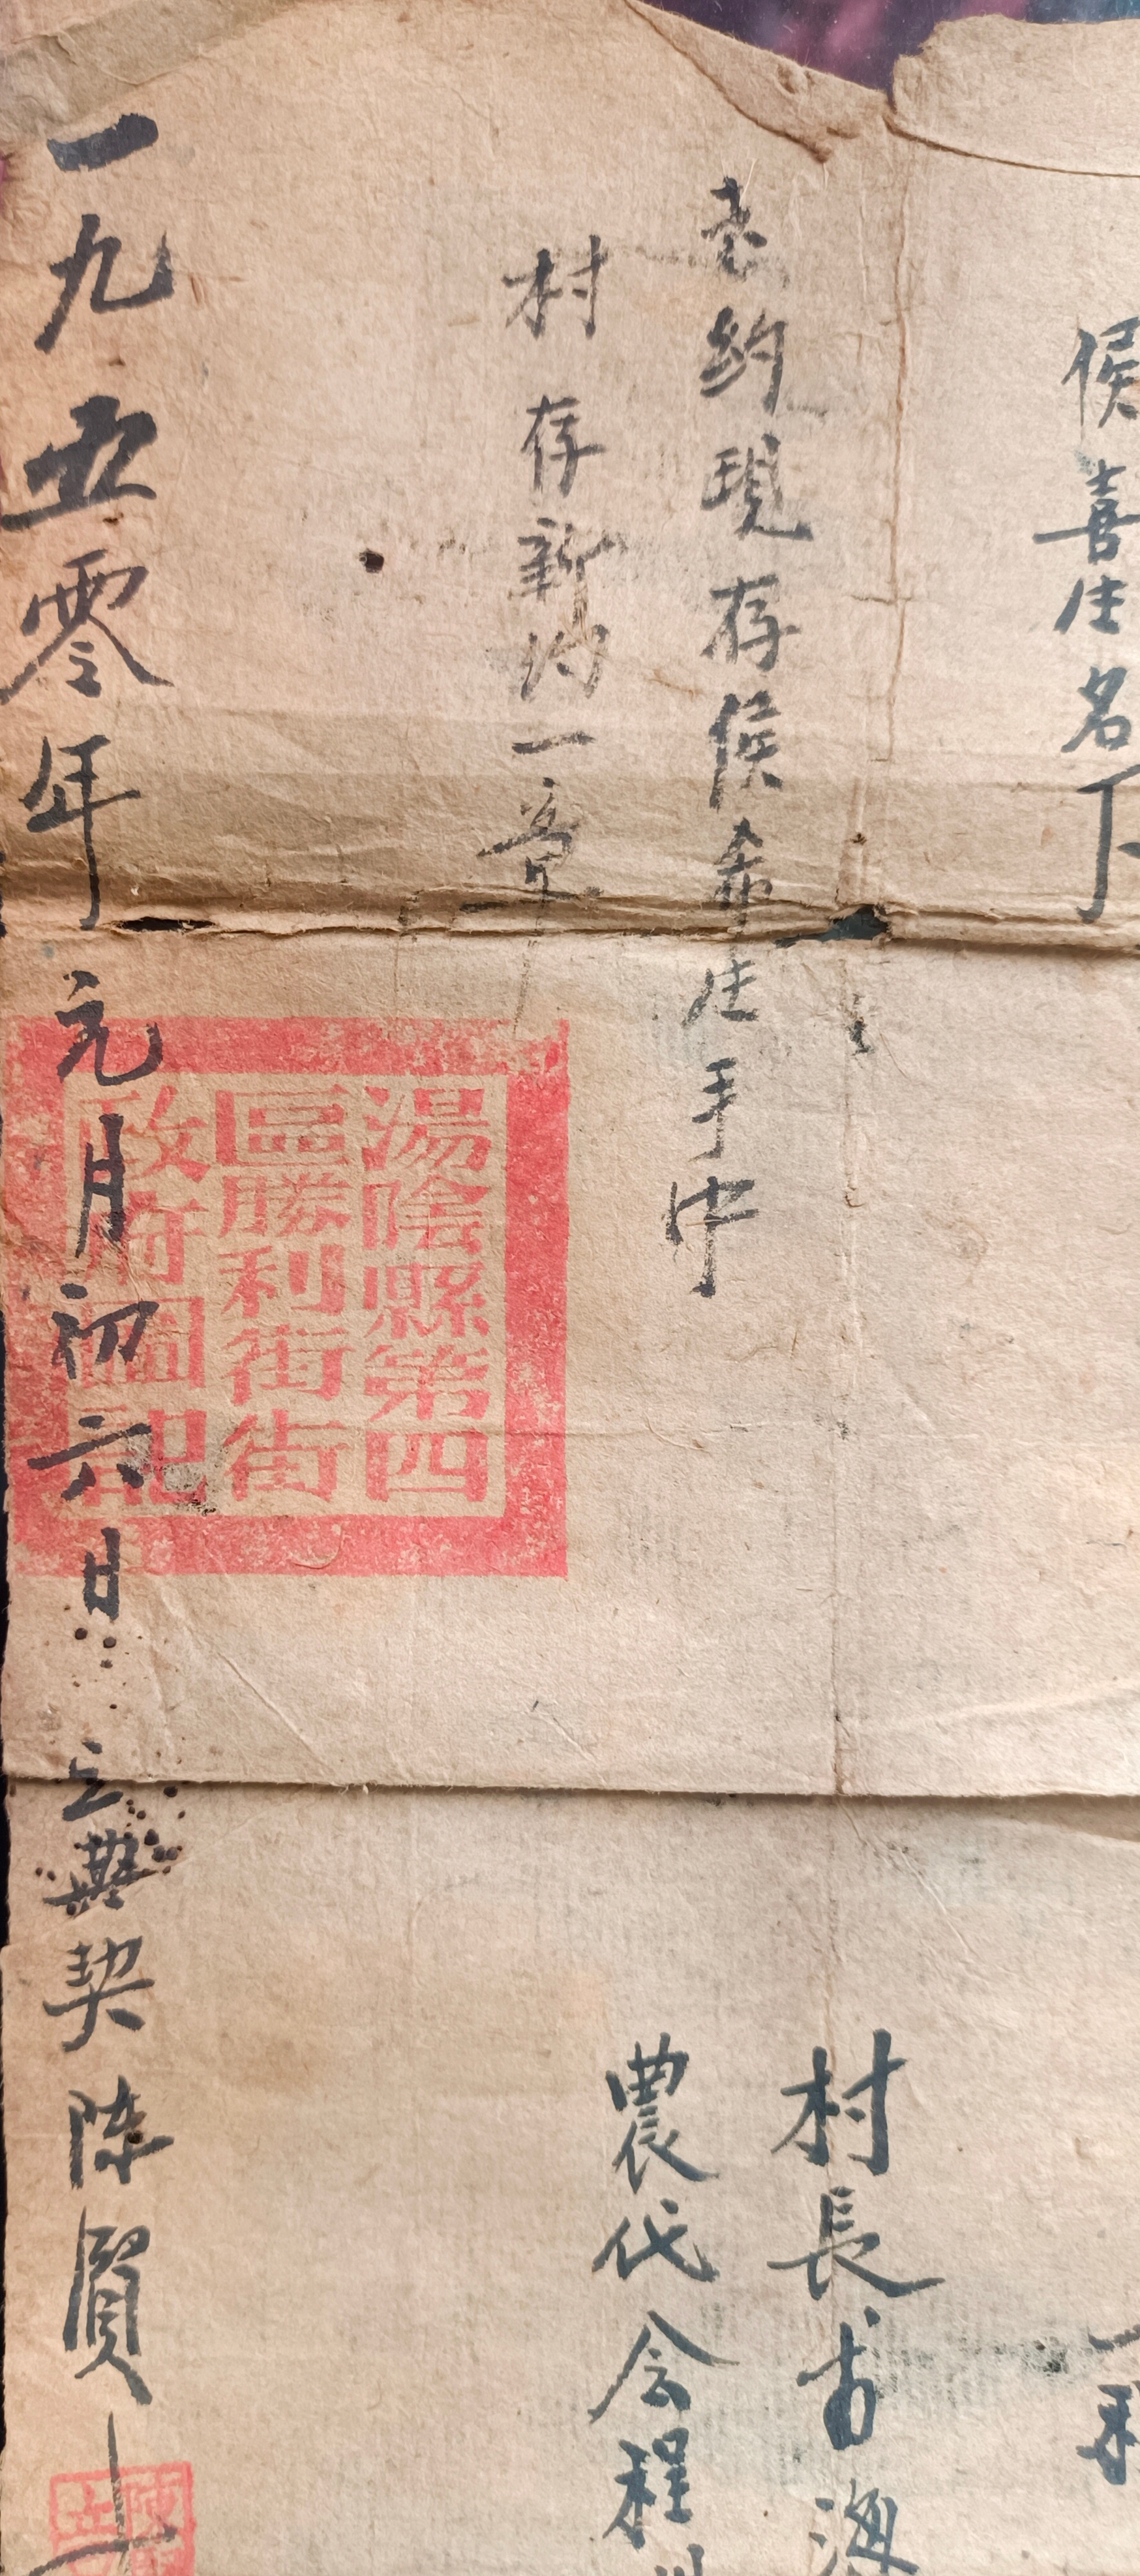 侯喜生名下
老约現存侯希生手中
村存新约一章
村長
農代会程
一九五零年元月初六日 立典契陳賢
湯陰縣第四
區勝利街街
政府圖記